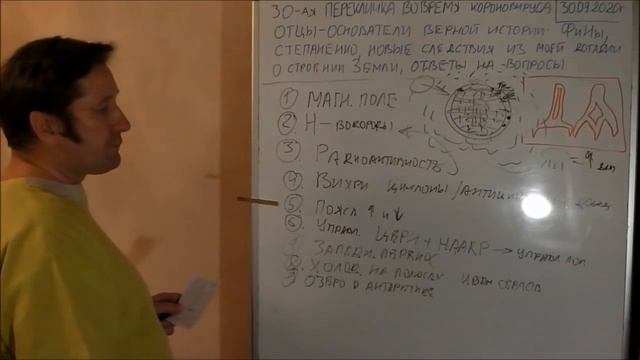 30-ая ПЕРЕКЛИЧКА ВО ВРЕМЯ КОРОНОВИРУСА 30.09.2020г
ОТЦЫ-ОСНОВАТЕЛИ ВЕРНОЙ ИСТОРИИ: ФИНЫ,
СТЕПАНЕНКО, НОВЫЕ СЛЕДСТВИЯ ИЗ МОЕЙ ДОГАДКИ
О СТРОЕНИИ ЗЕМЛИ, ОТВЕТЫ НА ВОПРОСЫ
1 МАГН. ПОЛЕ
2 Н-ВОДОРОДЫ
3 РАДИОАКТИВНОСТЬ
4 ВИХРИ ЦИКЛОНЫ/
5 ПОЯСА ↑ и ↓
6 УПРАВЛ. ЦЕРН + НААКР →
8 ХОЛОД НА ПОЛЮСАХ
9 ОЗЕРО В АНТАРКТИДЕ